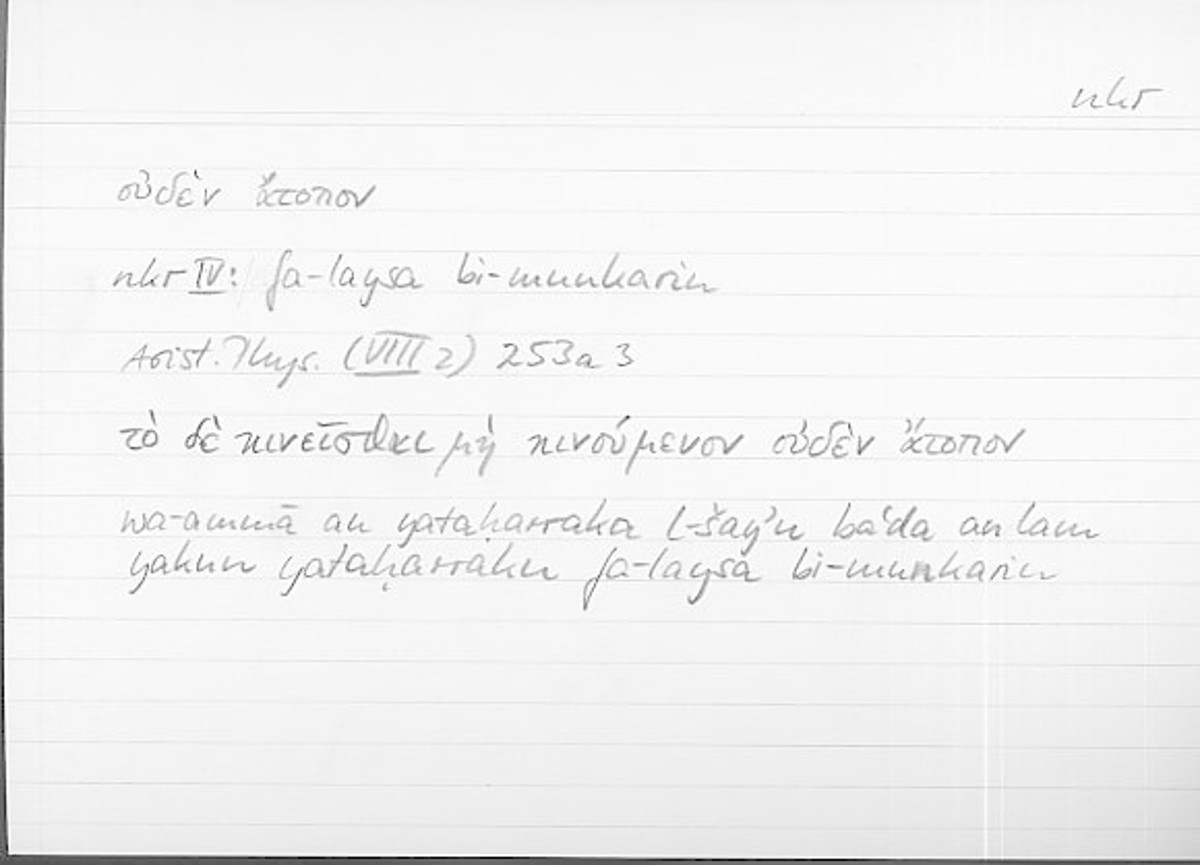 nkr
οὐδὲν ἄτοπον
nkr IV: fa-laysa bi-munkarin
Arist. Phys. (VIII 2) 253a3
τὸ δὲ κινεῖσθαι μὴ κινούμενον οὐδὲν ἄτοπον
wa-ammā an yataḥarraka l-šayʾu baʿda an lam
yakun yataḥarraku fa-laysa bi-munkarin